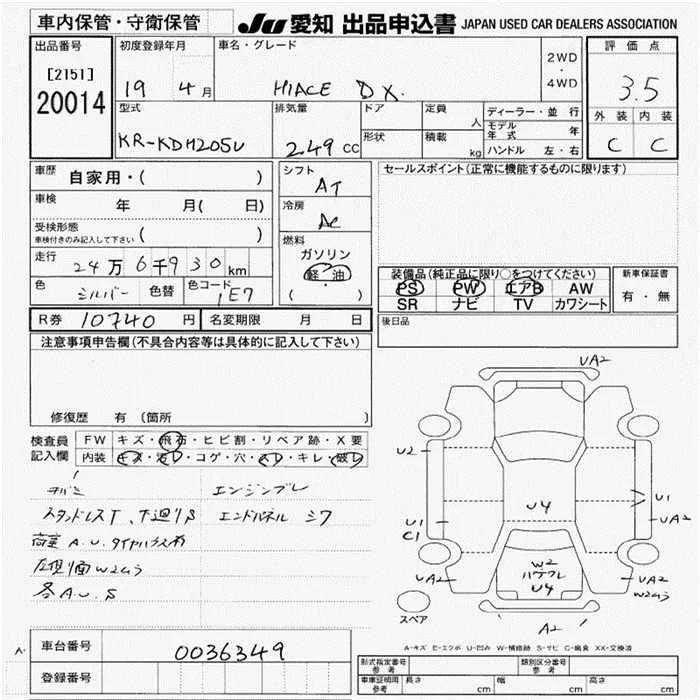 車内保管・守衛保管
JU 愛知 出品申込書 JAPAN USED CAR DEALERS ASSOCIATION
出品番号 初度登録年月 車名・グレード 2WD・4WD 評価点
[2151] 20014 19 4月 HIACE DX. 3.5
型式 排気量 ドア 定員 人 ディーラー・並行 外装 内装
KR-KDH205V 2.49cc 形状 積載 kg モデル年式 年 C C
ハンドル 左・右
車歴 自家用・( ) シフト AT セールスポイント(正常に機能するものに限ります)
車検 年 月( 日) 冷房 AC
受検形態 ( )
車検付きのみ記入して下さい
燃料 ガソリン
軽・油
( ・ )
走行 24万6千930km
色 シルバー 色替 色コード 1E7
装備品(純正品に限り○をつけてください) 新車保証書
PS PW エアB AW 有・無
SR ナビ TV カワシート
R券 10740円 名変期限 月 日 後日品
注意事項申告欄(不具合内容等は具体的に記入して下さい)
修復歴 有(箇所
検査員記入欄 FW キズ・飛石・ヒビ割・リペア跡・X要
内装 キズ・汚レ・コゲ・穴・スレ・キレ・破レ
エンジンブレ
下廻りS
A.U.
各A.U.S
UA2
U2
U4
U1
UA2
U1
C1
W2
U4
UA2
UA2
A2
スペア
A-キズ E-エクボ U-凹み W-補修跡 S-サビ C-腐食 XX-交換済
車台番号 0036349
登録番号
型式指定番号 参考 類別区分番号 参考
車庫証明用 参考 長さ cm 幅 cm 高さ cm